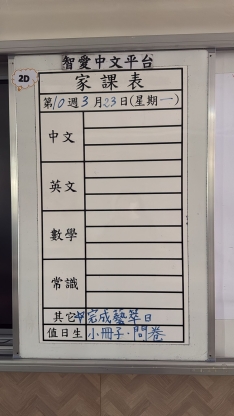 智愛中文平台
2D
家課表
第10週3月23日(星期一)
中文
英文
數學
常識
其它 完成藝萃日
值日生 小冊子、問卷